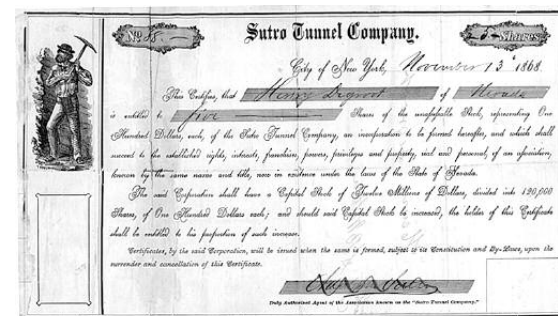 No. 58 Sutro Tunnel Company. 5 Shares
City of New York, November 13 1868
This Certifies, that Henry Degroot of Nevada
is entitled to five Shares of the unassessable Stock, representing One
Hundred Dollars, each, of the Sutro Tunnel Company, an incorporation to be formed hereafter, and which shall
succeed to the established rights, interests, franchises, powers, privileges and property, real and personal, of an association,
known by the same name and title, now in existence under the laws of the State of Nevada.
The said Corporation shall have a Capital Stock of Twelve Millions of Dollars, divided into 120,000
Shares, of One Hundred Dollars each; and should said Capital Stock be increased, the holder of this Certificate
shall be entitled to his proportion of such increase.
Certificates, by the said Corporation, will be issued when the same is formed, subject to its Constitution and By-Laws, upon the
surrender and cancellation of this Certificate.
Duly Authorized Agent of the Association known as the "Sutro Tunnel Company."